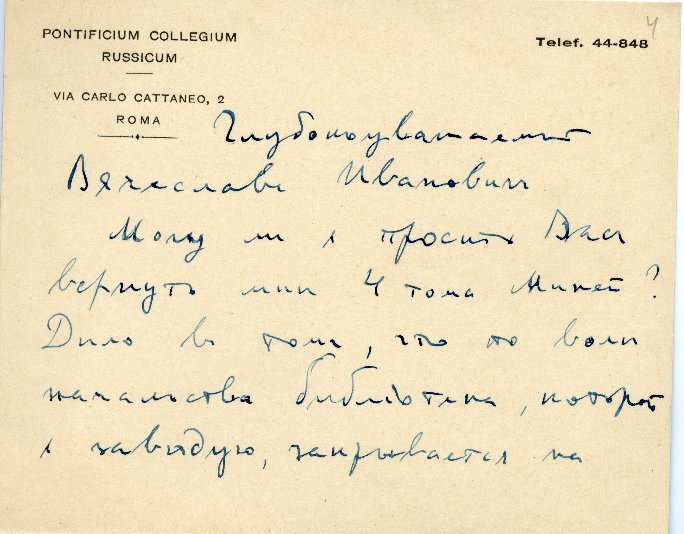 4
PONTIFICIUM COLLEGIUM
RUSSICUM
Telef. 44-848
VIA CARLO CATTANEO, 2
ROMA
Глубокоуважаемый
Вячеславъ Ивановичъ
Могу ли я просить Васъ
вернуть мнѣ 4 тома Миней?
Дѣло въ томъ, что по волѣ
начальства библіотека, которой
я завѣдую, закрывается на